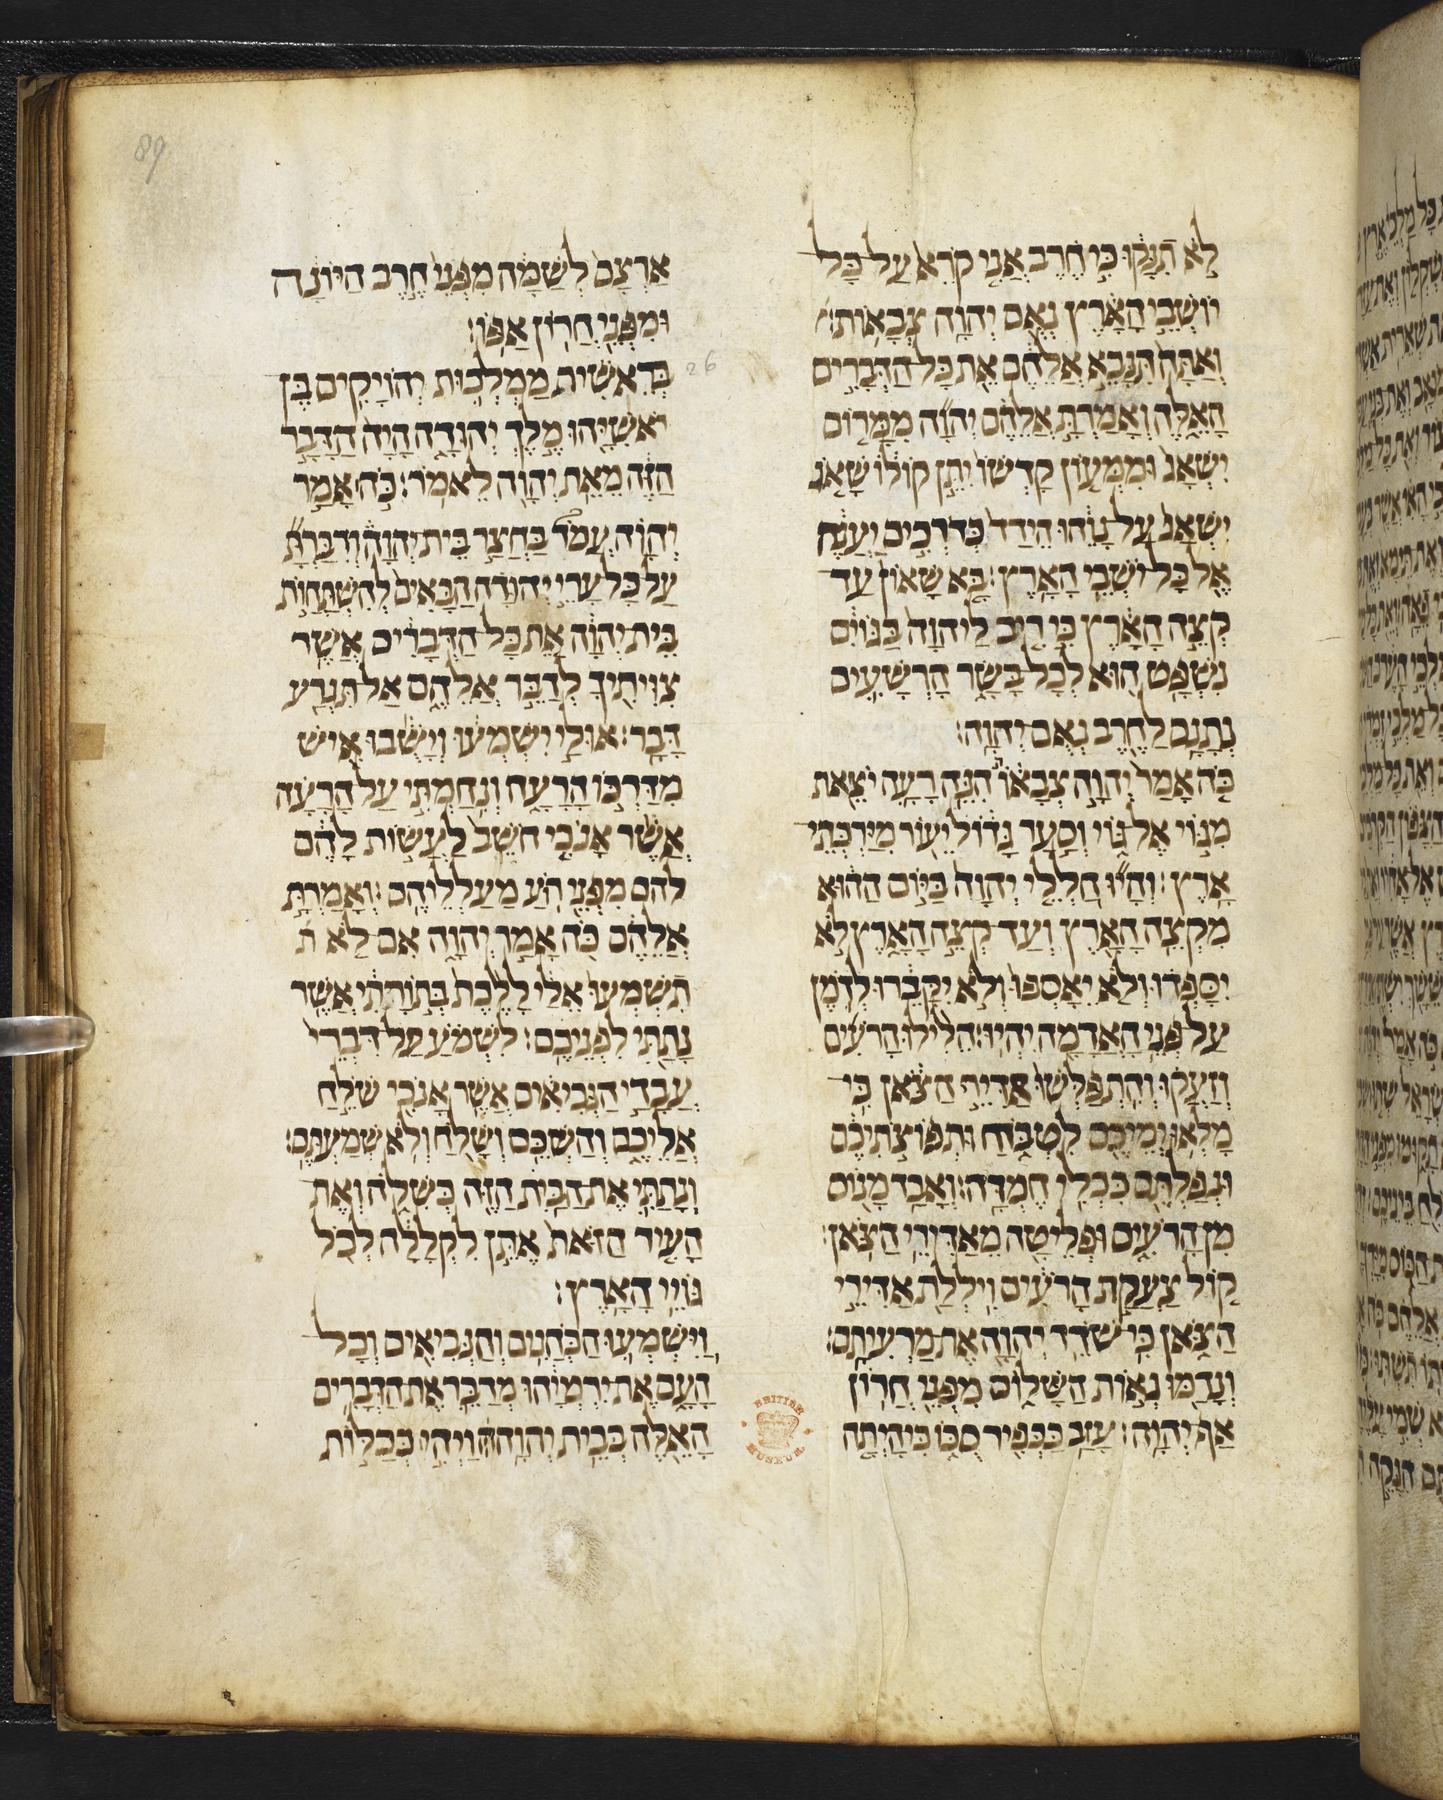 לֹא תִנָּקוּ כִּי חֶרֶב אֲנִי קֹרֵא עַל כָּל
יוֹשְׁבֵי הָאָרֶץ נְאֻם יְהוָה צְבָאוֹת׃
וְאַתָּה תִּנָּבֵא אֲלֵהֶם אֵת כָּל הַדְּבָרִים
הָאֵלֶּה וְאָמַרְתָּ אֲלֵהֶם יְהוָה מִמָּרוֹם
יִשְׁאָג וּמִמְּעוֹן קָדְשׁוֹ יִתֵּן קוֹלוֹ שָׁאֹג
יִשְׁאַג עַל נָוֵהוּ הֵידַד כְּדֹרְכִים יַעֲנֶה
אֶל כָּל יֹשְׁבֵי הָאָרֶץ׃ בָּא שָׁאוֹן עַד
קְצֵה הָאָרֶץ כִּי רִיב לַיהוָה בַּגּוֹיִם
נִשְׁפָּט הוּא לְכָל בָּשָׂר הָרְשָׁעִים
נְתָנָם לַחֶרֶב נְאֻם יְהוָה׃
כֹּה אָמַר יְהוָה צְבָאוֹ הִנֵּה רָעָה יֹצֵאת
מִגּוֹי אֶל גּוֹי וְסַעַר גָּדוֹל יֵעוֹר מִיַּרְכְּתֵי
אָרֶץ׃ וְהָיוּ חַלְלֵי יְהוָה בַּיּוֹם הַהוּא
מִקְצֵה הָאָרֶץ וְעַד קְצֵה הָאָרֶץ לֹא
יִסָּפְדוּ וְלֹא יֵאָסְפוּ וְלֹא יִקָּבֵרוּ לְדֹמֶן
עַל פְּנֵי הָאֲדָמָה יִהְיוּ׃ הֵלִילוּ הָרֹעִים
וְזַעֲקוּ וְהִתְפַּלְּשׁוּ אַדִּירֵי הַצֹּאן כִּי
מָלְאוּ יְמֵיכֶם לִטְבוֹחַ וּתְפוֹצֹתִיכֶם
וּנְפַלְתֶּם כִּכְלִי חֶמְדָּה׃ וְאָבַד מָנוֹס
מִן הָרֹעִים וּפְלֵיטָה מֵאַדִּירֵי הַצֹּאן׃
קוֹל צַעֲקַת הָרֹעִים וִילְלַת אַדִּירֵי
הַצֹּאן כִּי שֹׁדֵד יְהוָה אֶת מַרְעִיתָם׃
וְנָדַמּוּ נְאוֹת הַשָּׁלוֹם מִפְּנֵי חֲרוֹן
אַף יְהוָה׃ עָזַב כַּכְּפִיר סֻכּוֹ כִּי הָיְתָה
אַרְצָם לְשַׁמָּה מִפְּנֵי חֶרֶב הַיּוֹנָה
וּמִפְּנֵי חֲרוֹן אַפּוֹ׃
בְּרֵאשִׁית מַמְלְכוּת יְהוֹיָקִים בֶּן
יֹאשִׁיָּהוּ מֶלֶךְ יְהוּדָה הָיָה הַדָּבָר
הַזֶּה מֵאֵת יְהוָה לֵאמֹר׃ כֹּה אָמַר
יְהוָה עֲמֹד בַּחֲצַר בֵּית יְהוָה וְדִבַּרְתָּ
עַל כָּל עָרֵי יְהוּדָה הַבָּאִים לְהִשְׁתַּחֲוֹת
בֵּית יְהוָה אֵת כָּל הַדְּבָרִים אֲשֶׁר
צִוִּיתִיךָ לְדַבֵּר אֲלֵהֶם אַל תִּגְרַע
דָּבָר׃ אוּלַי יִשְׁמְעוּ וְיָשֻׁבוּ אִישׁ
מִדַּרְכּוֹ הָרָעָה וְנִחַמְתִּי עַל הָרָעָה
אֲשֶׁר אָנֹכִי חֹשֵׁב לַעֲשׂוֹת לָהֶם
להם מִפְּנֵי רֹעַ מַעַלְלֵיהֶם׃ וְאָמַרְתָּ
אֲלֵהֶם כֹּה אָמַר יְהוָה אִם לֹא ת
תִשְׁמְעוּ אֵלַי לָלֶכֶת בְּתוֹרָתִי אֲשֶׁר
נָתַתִּי לִפְנֵיכֶם׃ לִשְׁמֹעַ עַל דִּבְרֵי
עֲבָדַי הַנְּבִיאִים אֲשֶׁר אָנֹכִי שֹׁלֵחַ
אֲלֵיכֶם וְהַשְׁכֵּם וְשָׁלֹחַ וְלֹא שְׁמַעְתֶּם׃
וְנָתַתִּי אֶת הַבַּיִת הַזֶּה כְּשִׁלֹה וְאֶת
הָעִיר הַזֹּאת אֶתֵּן לִקְלָלָה לְכֹל
גּוֹיֵי הָאָרֶץ׃
וַיִּשְׁמְעוּ הַכֹּהֲנִים וְהַנְּבִיאִים וְכָל
הָעָם אֶת יִרְמְיָהוּ מְדַבֵּר אֶת הַדְּבָרִים
הָאֵלֶּה בְּבֵית יְהוָה׃ וַיְהִי כְּכַלּוֹת
89
26
BRITISH MUSEUM